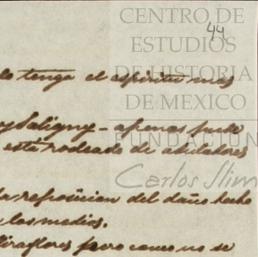 CENTRO DE
44
ESTUDIOS
DE HISTORIA
DE MEXICO
lo tenga el espiritu mas
y Saligny - apenas pude
FUNDACIÓN
esta rodeado de aduladores
Carlos Slim
la reposicion del daño hecho
los medios.
Miraflores pero como no se